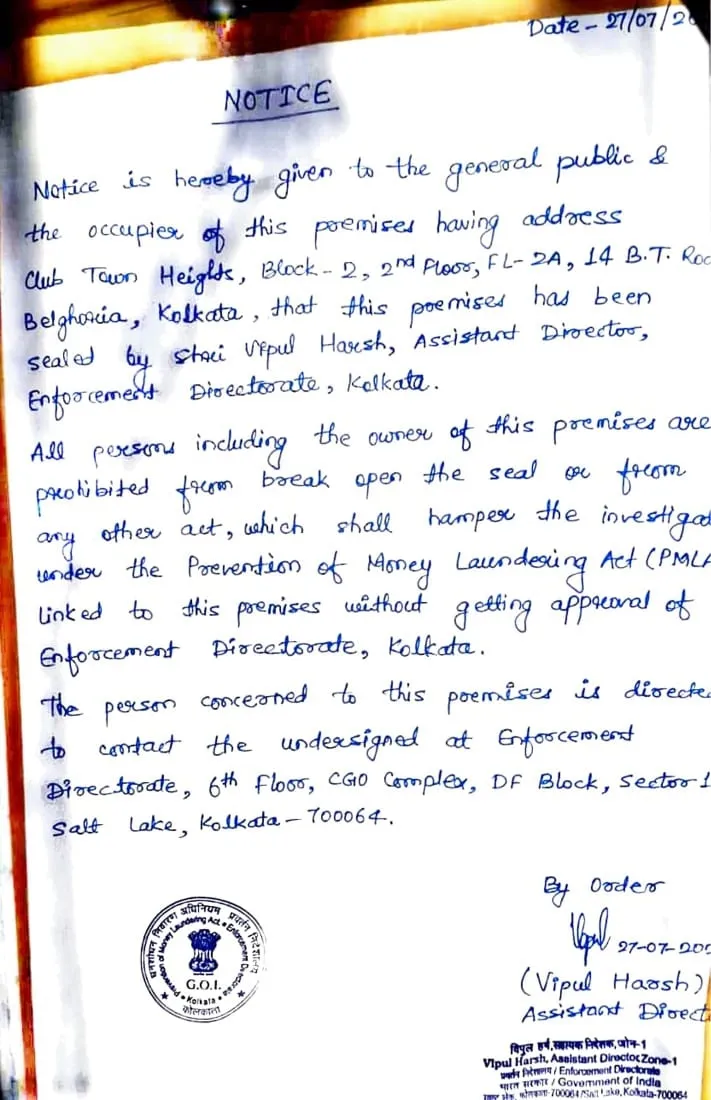 Date - 27/07/20
NOTICE
Notice is hereby given to the general public &
the occupier of this premises having address
Club Town Heights, Block - 2, 2nd Floor, FL- 2A, 14 B.T. Roa
Belghoria, Kolkata, that this premises has been
sealed by Shri Vipul Harsh, Assistant Director,
Enforcement Directorate, Kolkata.
All persons including the owner of this premises are
prohibited from break open the seal or from
any other act, which shall hamper the investigat
under the Prevention of Money Laundering Act (PMLA
linked to this premises without getting approval of
Enforcement Directorate, Kolkata.
The person concerned to this premises is directe
to contact the undersigned at Enforcement
Directorate, 6th Floor, CGO Complex, DF Block, Sector-1
Salt Lake, Kolkata - 700064.
By Order
27-07-202
(Vipul Harsh)
Assistant Direct
धनशोधन निवारण अधिनियम प्रवर्तन निदेशालय
Prevention of Money Laundering Act • Enforcement Directorate
G.O.I.
• Kolkata •
कोलकाता
विपुल हर्ष, सहायक निदेशक, जोन-1
Vipul Harsh, Assistant Director Zone-1
प्रवर्तन निदेशालय / Enforcement Directorate
भारत सरकार / Government of India
कोलकाता-700064/Salt Lake, Kolkata-700064